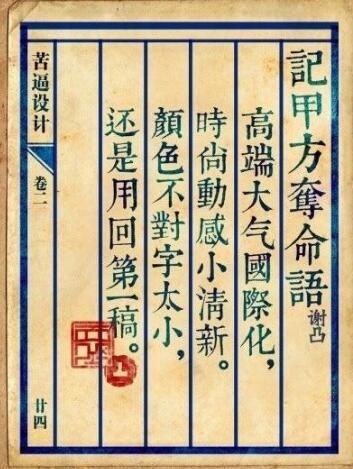 記甲方奪命語
谢凸
高端大气國際化，
時尚動感小清新。
顏色不對字太小，
还是用回第一稿。
苦逼设计
卷二
廿四